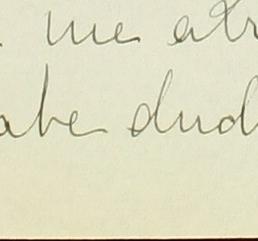 me atr
abe dud